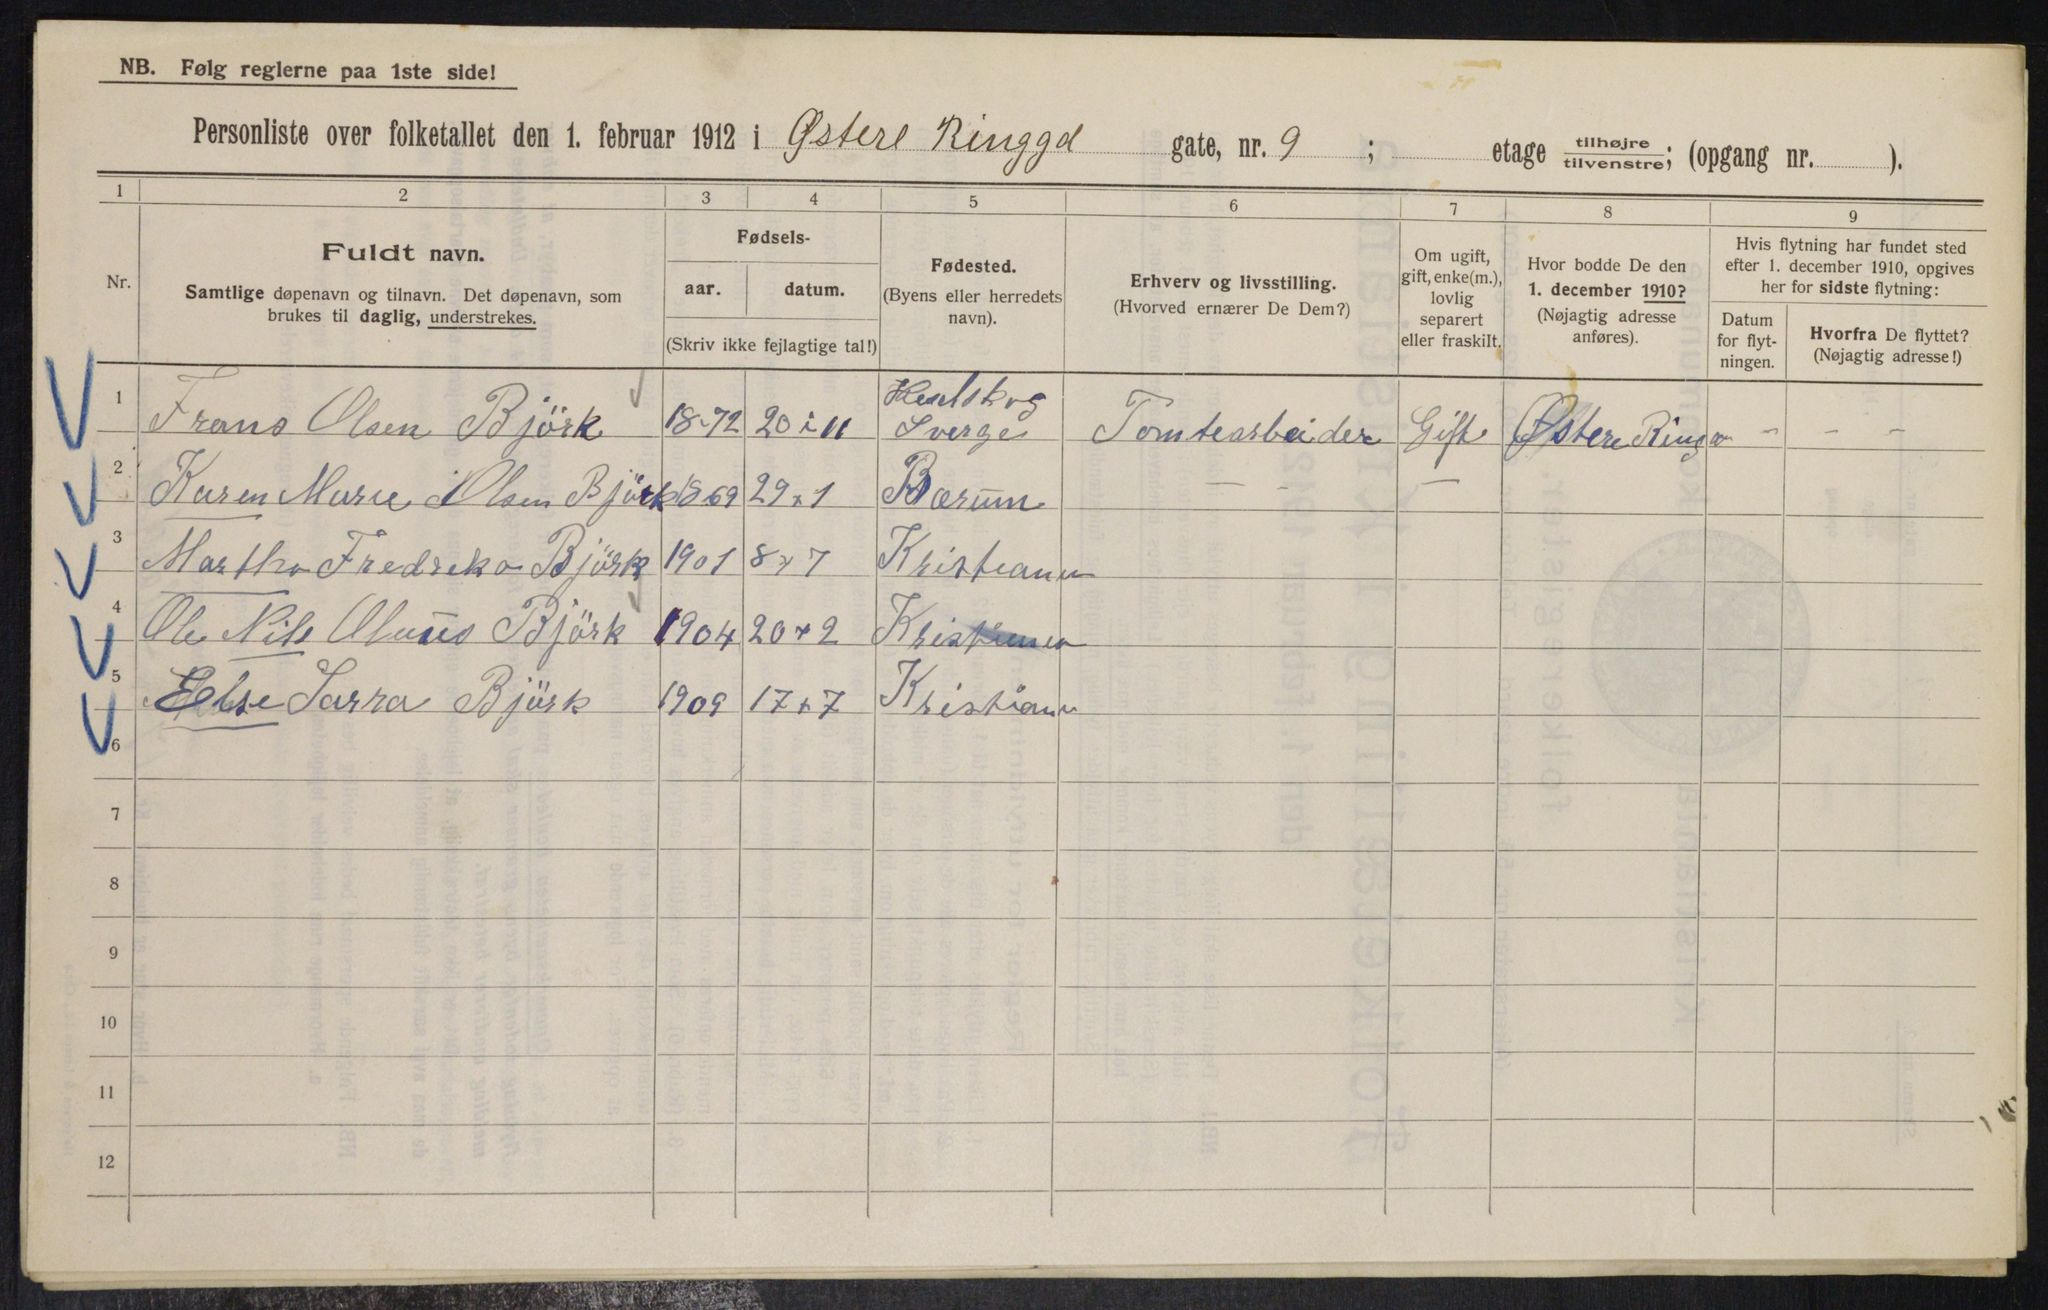 NB. Følg reglerne paa 1ste side!
Personliste over folketallet den 1. februar 1912 i Østere Ringgd gate, nr. 9 ; etage tilhøjre tilvenstre; (opgang nr. ).
1 2 3 4 5 6 7 8 9
Nr.
Fuldt navn.
Samtlige døpenavn og tilnavn. Det døpenavn, som
brukes til daglig, understrekes.
Fødsels-
aar. datum.
(Skriv ikke fejlagtige tal!)
Fødested.
(Byens eller herredets
navn).
Erhverv og livsstilling.
(Hvorved ernærer De Dem?)
Om ugift,
gift, enke(m.),
lovlig
separert
eller fraskilt.
Hvor bodde De den
1. december 1910?
(Nøjagtig adresse
anføres).
Hvis flytning har fundet sted
efter 1. december 1910, opgives
her for sidste flytning:
Datum
for flyt-
ningen.
Hvorfra De flyttet?
(Nøjagtig adresse!)
1 Frans Olsen Björk 1872 20 i 11 Sverge Tomtearbeider Gift Østere Ring - - -
2 Karen Marie Olsen Björk 1869 29 x 1 Bærum - - - -
3 Martha Fredreka Björk 1901 8 x 7 Kristiania
4 Ole Nils Björk 1904 20 x 2 Kristiania
5 Else Sarra Björk 1909 17 x 7 Kristiania
6
7
8
9
10
11
12